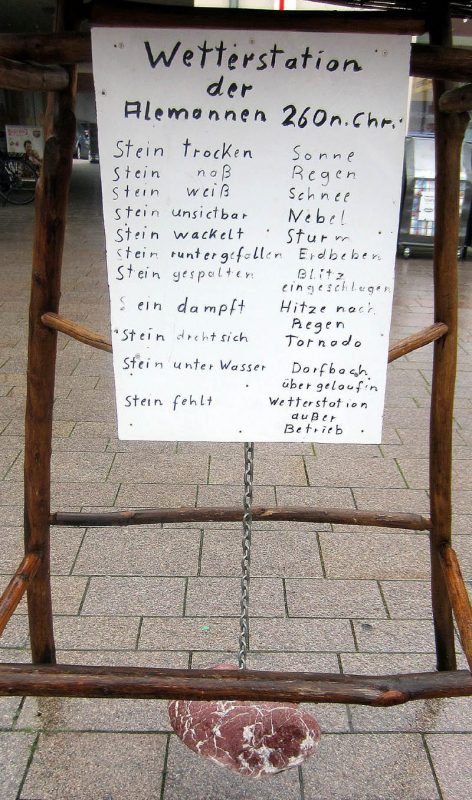 Wetterstation
der
Alemannen 260 n. Chr.
Stein trocken Sonne
Stein naß Regen
Stein weiß Schnee
Stein unsictbar Nebel
Stein wackelt Sturm
Stein runtergefallen Erdbeben
Stein gespalten Blitz
eingeschlagen
Stein dampft Hitze nach
Regen
Stein dreht sich Tornado
Stein unter Wasser Dorfbach
übergelaufin
Stein fehlt Wetterstation
außer
Betrieb